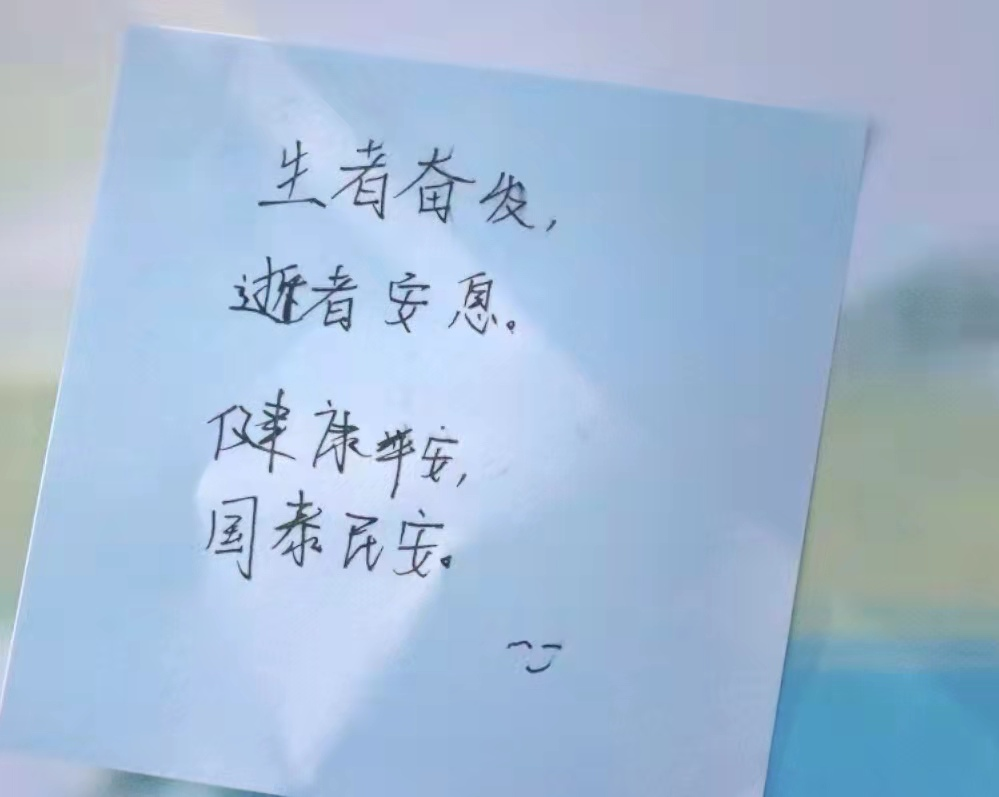 生者奋发，
逝者安息。
健康平安，
国泰民安。